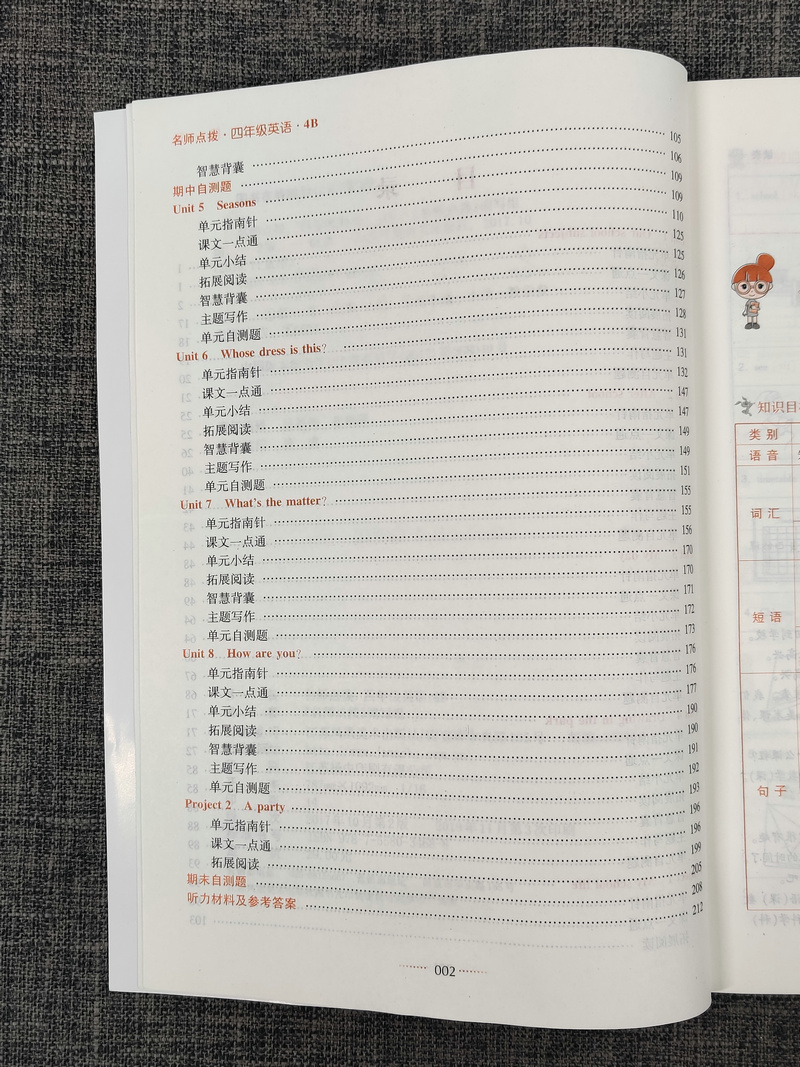 名师点拨·四年级英语·4B
智慧背囊 105
期中自测题 106
Unit 5 Seasons 109
单元指南针 109
课文一点通 110
单元小结 125
拓展阅读 125
智慧背囊 126
主题写作 127
单元自测题 128
Unit 6 Whose dress is this? 131
单元指南针 131
课文一点通 132
单元小结 147
拓展阅读 147
智慧背囊 149
主题写作 149
单元自测题 151
Unit 7 What's the matter? 155
单元指南针 155
课文一点通 156
单元小结 170
拓展阅读 170
智慧背囊 171
主题写作 172
单元自测题 173
Unit 8 How are you? 176
单元指南针 176
课文一点通 177
单元小结 190
拓展阅读 190
智慧背囊 191
主题写作 192
单元自测题 193
Project 2 A party 196
单元指南针 196
课文一点通 199
拓展阅读 205
期末自测题 208
听力材料及参考答案 212
002
知识目
类别
语音
词汇
短语
句子